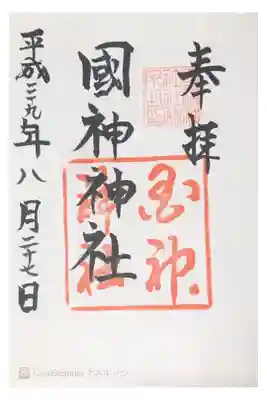 奉拝
國神神社
平成二九年八月二十七日
CamScanner でスキャン